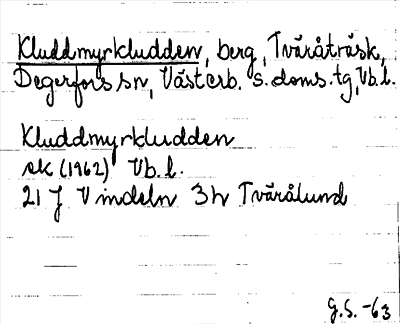 Kluddmyrkludden, berg, Tväråträsk,
Degerfors sn, Västerb. s. doms. tg, Vb. l.
Kluddmyrkludden
ek (1962) Vb. l.
21 J Vindeln 3h Tvärålund
G.S. -63